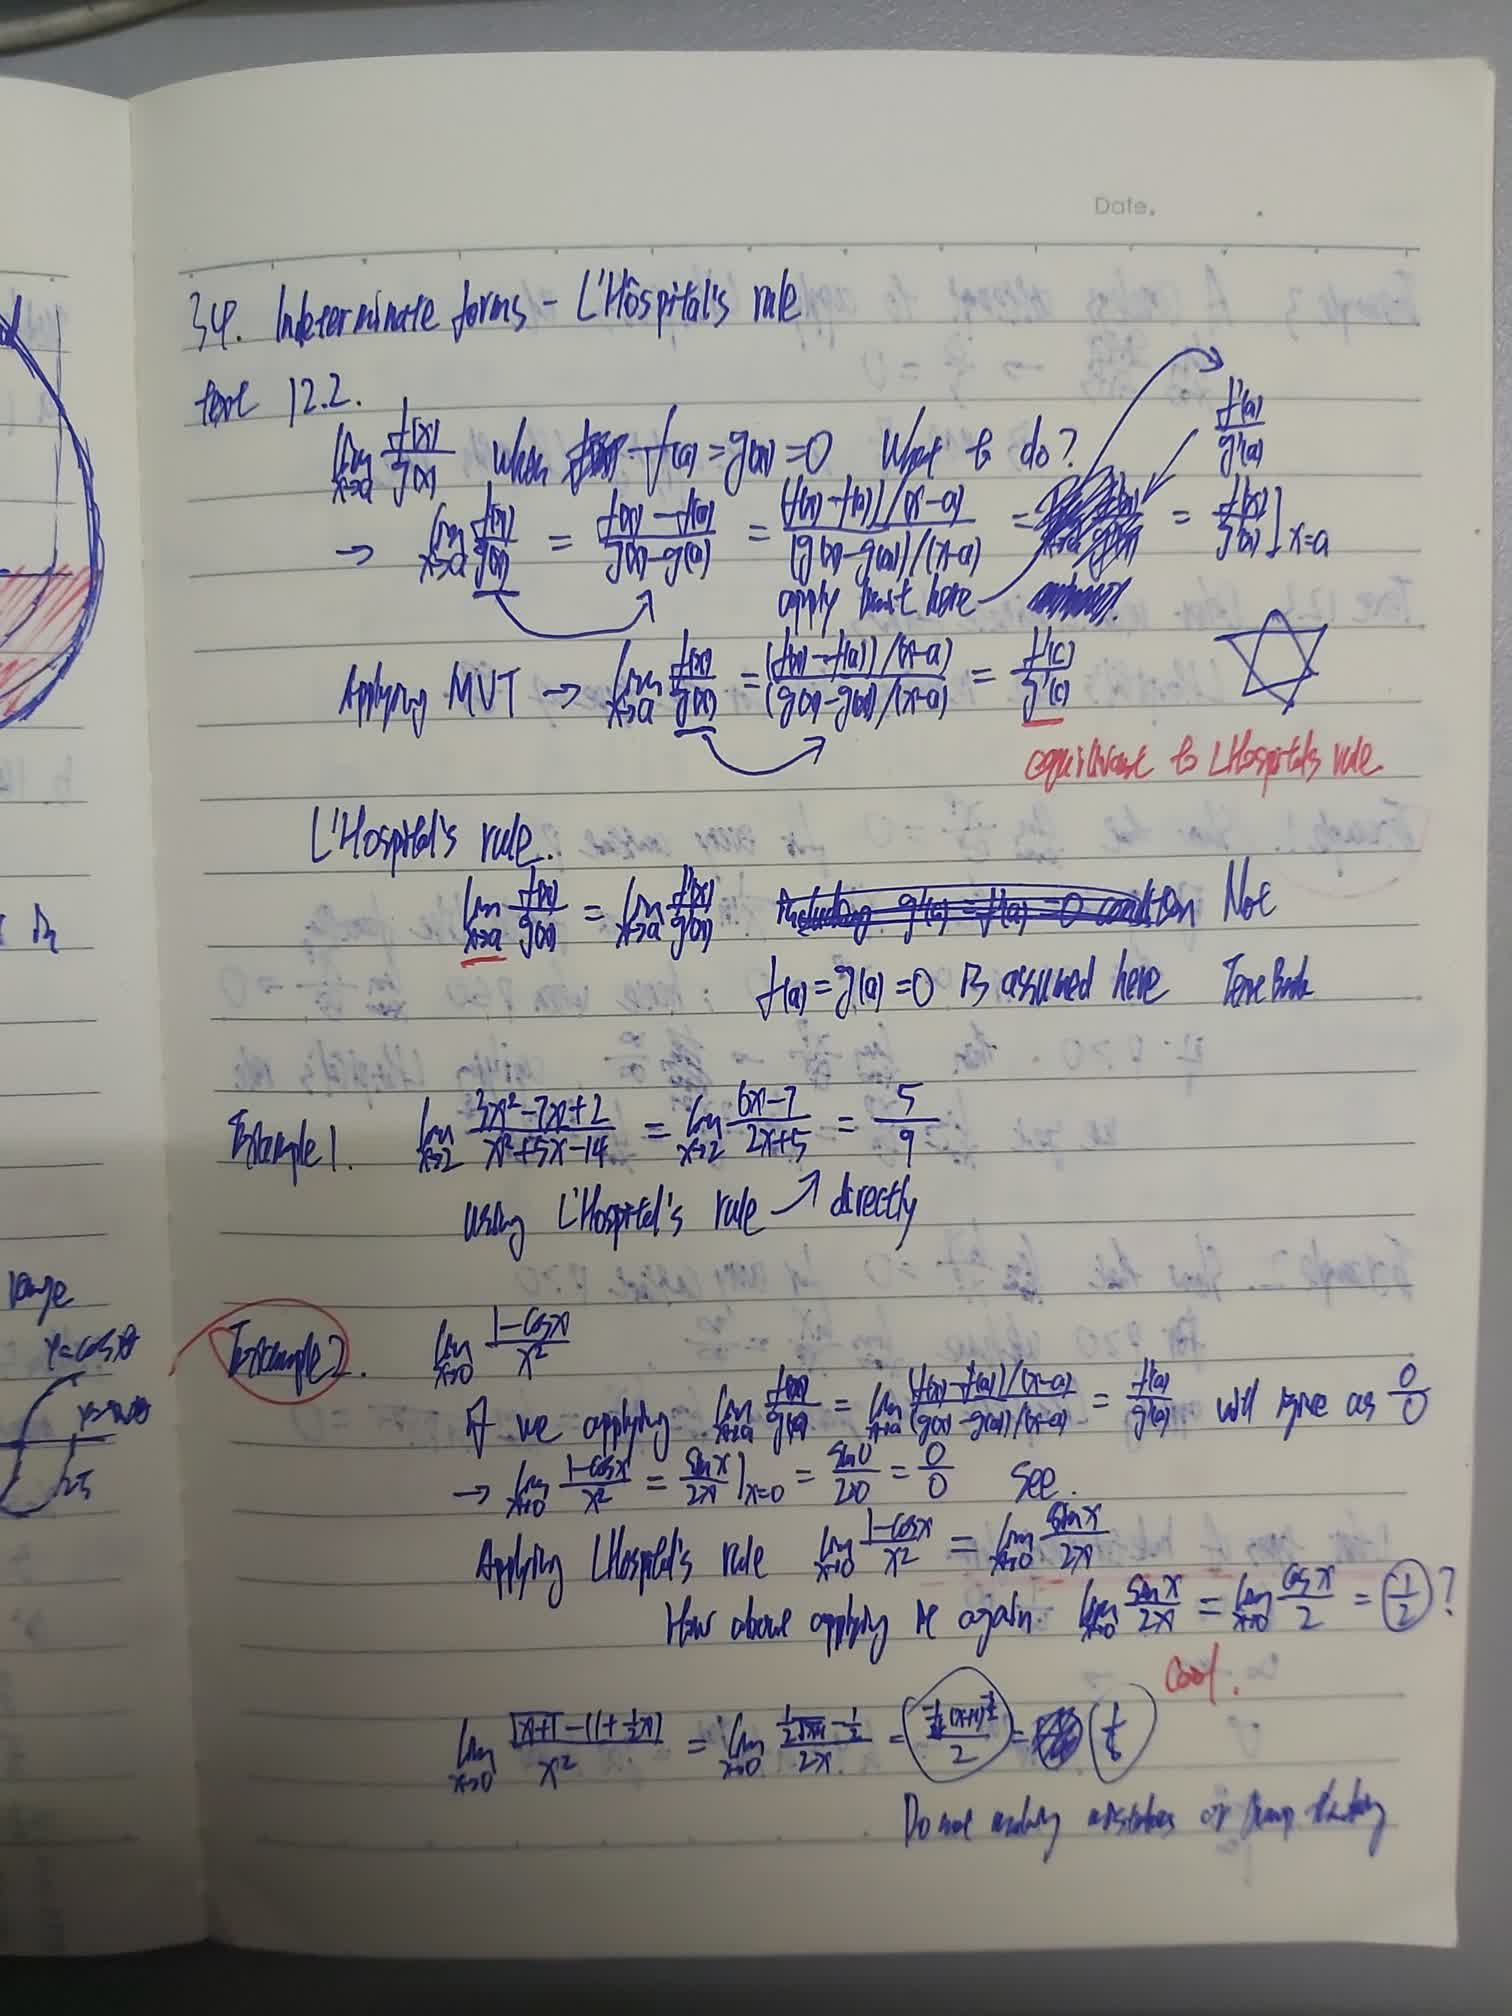 Date.
34. Indeterminate forms - L'Hôspital's rule
text 12.2.
lim x→a f(x)/g(x) when f(a) = g(a) = 0 What to do? f'(a)/g'(a)
→ lim x→a f(x)/g(x) = (f(x) - f(a))/(g(x) - g(a)) = ((f(x) - f(a))/(x-a))/((g(x) - g(a))/(x-a)) = = f'(x)/g'(x)]x=a
apply limit here
Applying MVT → lim x→a f(x)/g(x) = ((f(x) - f(a))/(x-a))/((g(x) - g(a))/(x-a)) = f'(c)/g'(c)
equilivant to L'Hospital's rule.
L'Hospital's rule.
lim x→a f(x)/g(x) = lim x→a f'(x)/g'(x) Including g'(a) = f'(a) = 0 condition Not
f(a) = g(a) = 0 is assumed here Text Book
Example 1. lim x→2 (3x²-7x+2)/(x²+5x-14) = lim x→2 (6x-7)/(2x+5) = 5/9
using L'Hospital's rule directly
range
y=cosθ
2π
Example 2. lim x→0 (1-cosx)/x²
If we applying lim x→a f(x)/g(x) = lim x→a ((f(x)-f(a))/(x-a))/((g(x)-g(a))/(x-a)) = f'(a)/g'(a) will give as 0/0
→ lim x→0 (1-cosx)/x² = sinx/2x|x=0 = sin0/2·0 = 0/0 See.
Applying L'Hospital's rule lim x→0 (1-cosx)/x² = lim x→0 sinx/2x
How about applying it again. lim x→0 sinx/2x = lim x→0 cosx/2 = 1/2 ?
Cool.
lim x→0 (√(x+1) - (1+½x))/x² = lim x→0 (1/(2√(x+1)) - ½)/2x =
Do not making mistakes or